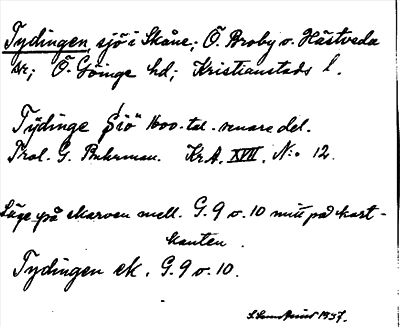 Tydingen, sjö i Skåne; Ö. Broby o. Hästveda
sk; Ö. Göinge hd; Kristianstads l.
Tÿdinge Siö 1600-tal. senare del.
Prol. G. Buhrman. Kr.A. XVII. N:o 12.
Läge på skarven mell. G. 9 o. 10 mitt på kart-
kanten.
Tydingen ek. G. 9 o. 10.
1937.